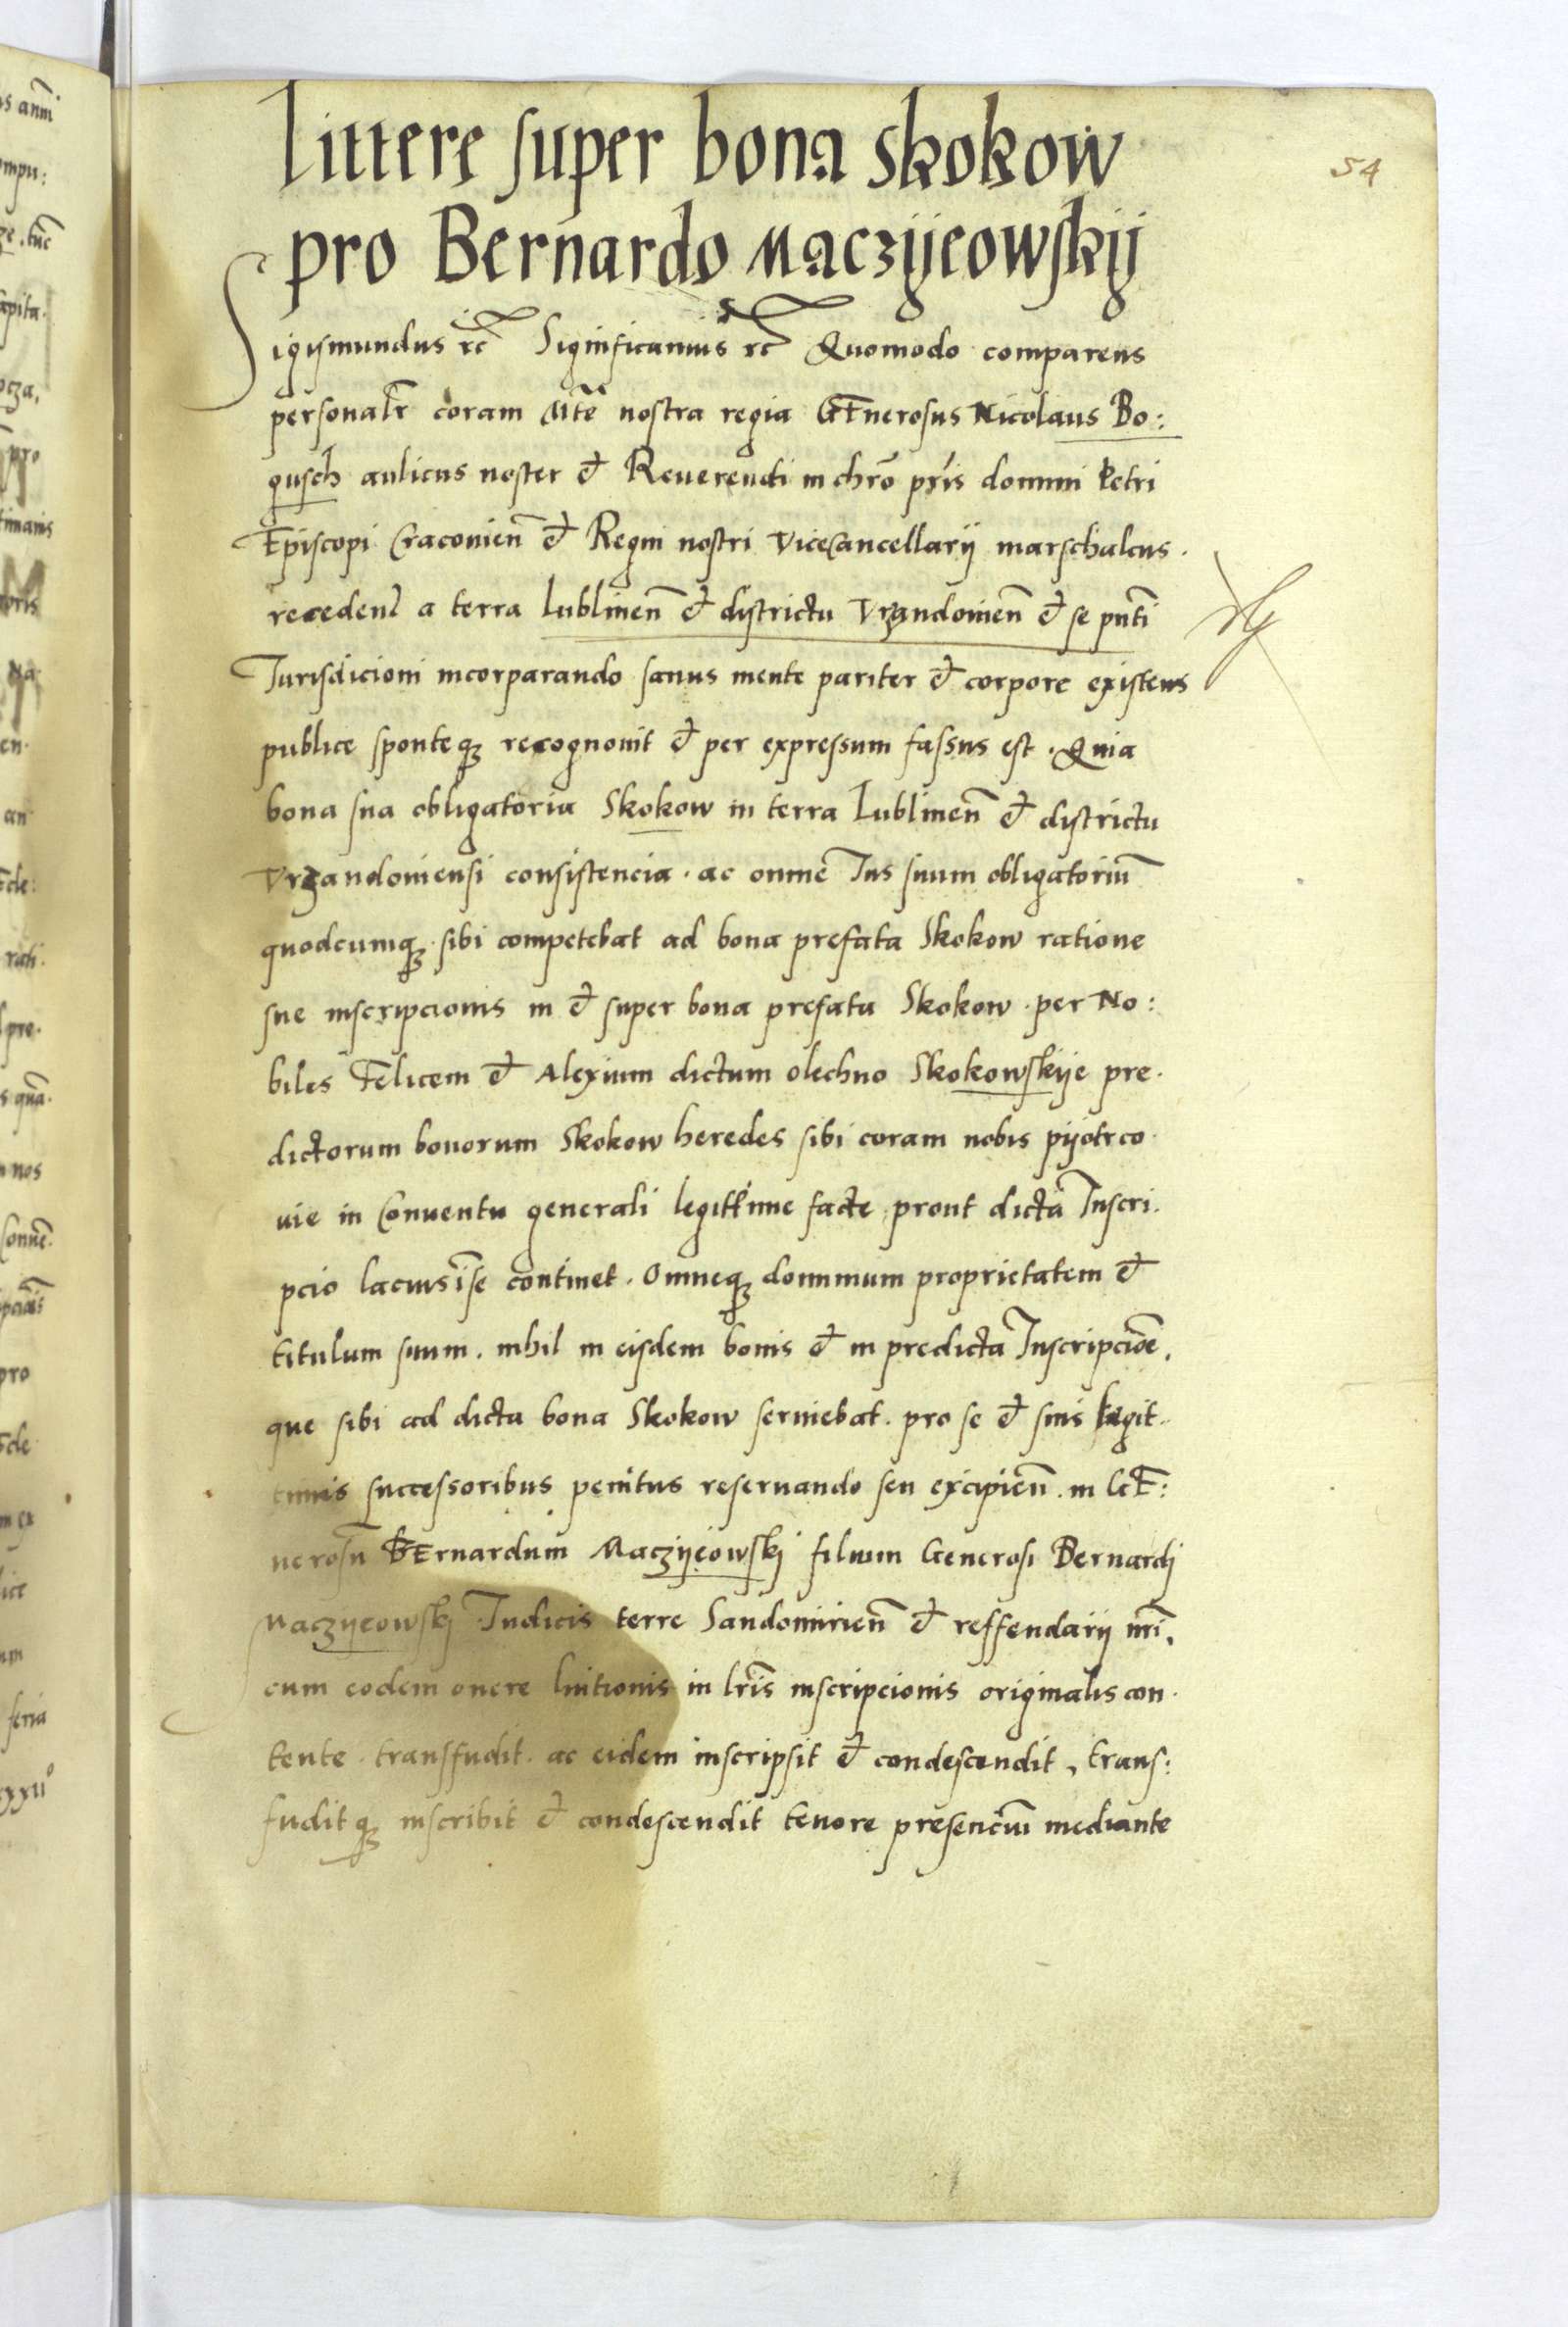 Littere super bona Skokow
pro Bernardo Maczÿeowskÿ
54
Sigismundus rc̄ Significamus rc̄ Quomodo comparens
personalr̄ coram Mtē nostra regia GEnerosus Nicolaus Bo:
gusch aulicus noster et Reuerendi in chrō pr̄is domini Petri
Episcopi Cracovien̄ et Regni nostri Vicecancellarij marschalcus.
recedenđ a terra Lublinen̄ et districtu Vrzandovien̄ et se pn̄ti
Iurisdicioni incorporando sanus mente pariter et corpore existens
publice sponteqꝫ recognouit et per expressum fassus est. Quia
bona sua obligatoria Skokow in terra Lublinen̄ et districtu
Vrzandoviensi consistencia. ac omne Ius suum obligatoriū
quodcumqꝫ sibi competebat ad bona prefata Skokow ratione
sue inscripcionis in et super bona prefata Skokow. per No:
biles Felicem et Alexium dictum olechno Skokowskÿe pre.
dictorum bonorum Skokow heredes sibi coram nobis pÿotrco
uie in Conuentu generali legittime facte prout dicta Inscri.
pcio lacius in se continet. Omneqꝫ dominium proprietatem et
titulum suum. nihil in eisdem bonis et in predicta Inscripciōe.
que sibi ad dicta bona Skokow seruiebat. pro se et suis legit.
timis successoribus penitus reseruando seu excipien̄. in GE:
nerosū BErnardum Maczÿeowskj filium Generosi Bernardj
Maczÿeowskj Iudicis terre Sandomirien̄ et reffendarij nr̄i.
cum eodem onere luitionis in lr̄is inscripcionis originalis con.
tente. transfudit. ac eidem inscripsit et condescendit, trans:
fuditqꝫ inscribit et condescendit tenore presenciū mediante